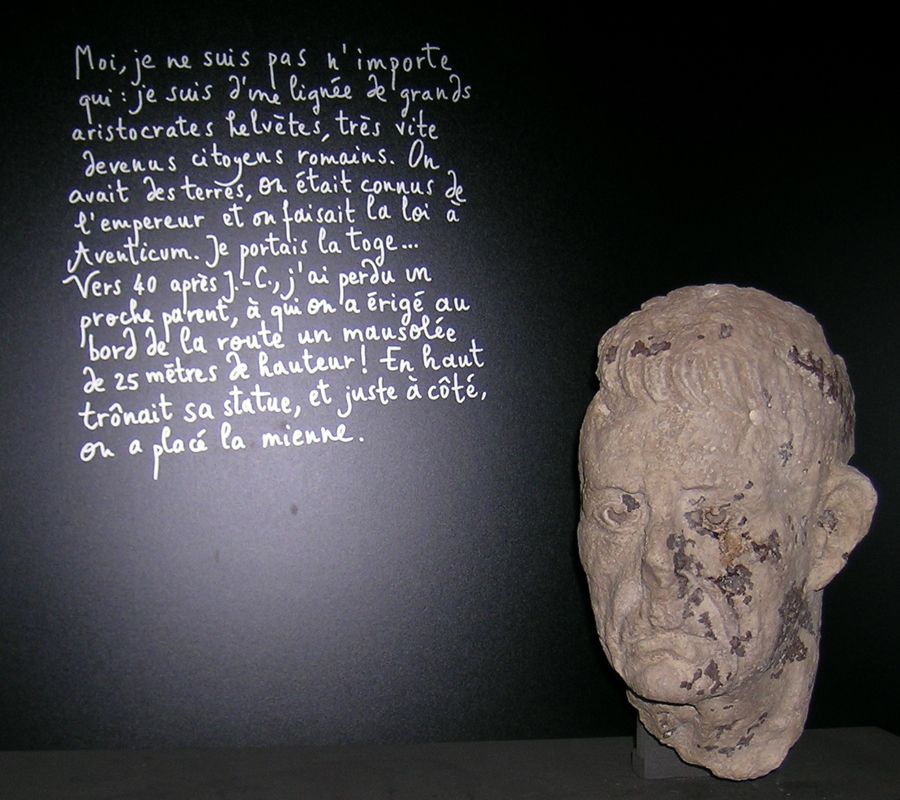 Moi, je ne suis pas n'importe
qui : je suis d'une lignée de grands
aristocrates helvètes, très vite
devenus citoyens romains. On
avait des terres, on était connus de
l'empereur et on faisait la loi à
Aventicum. Je portais la toge...
Vers 40 après J.-C., j'ai perdu un
proche parent, à qui on a érigé au
bord de la route un mausolée
de 25 mètres de hauteur ! En haut
trônait sa statue, et juste à côté,
on a placé la mienne.